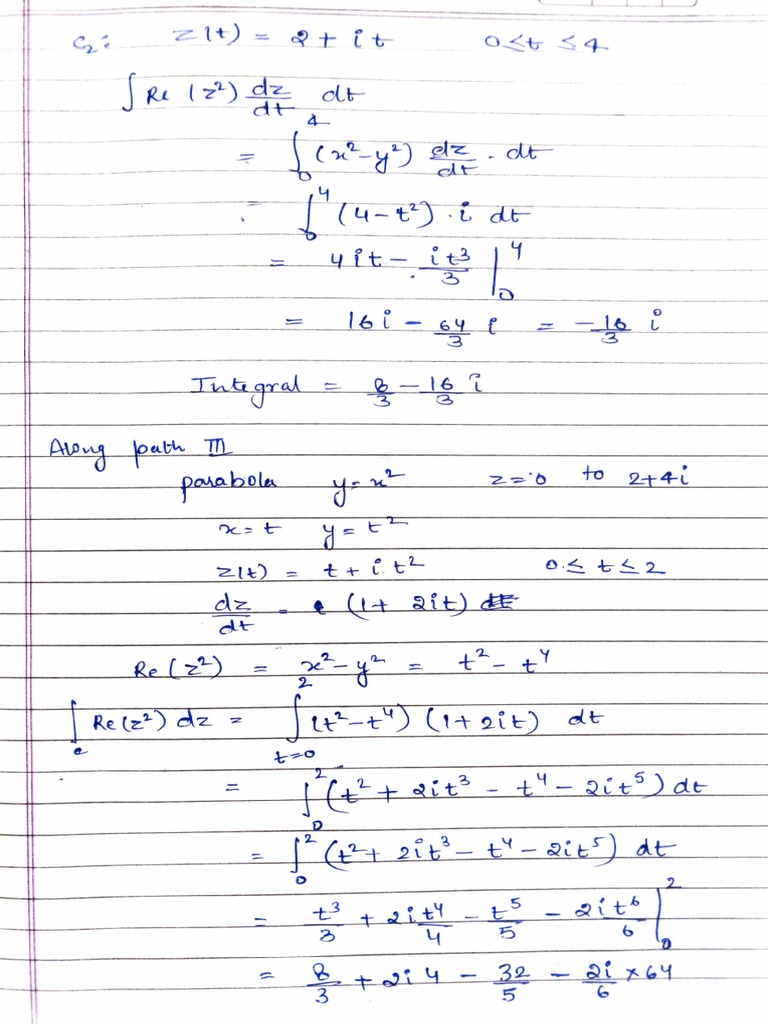 C₂: z(t) = 2 + it 0 ≤ t ≤ 4
∫ Re (z²) dz/dt dt
= ∫₀⁴ (x² - y²) dz/dt . dt
= ∫₀⁴ (4 - t²) . i dt
= 4it - it³/3 |₀⁴
= 16i - 64/3 i = -16/3 i
Integral = 8/3 - 16/3 i
Along path III
parabola y = x² z = 0 to 2+4i
x = t y = t²
z(t) = t + i t² 0 ≤ t ≤ 2
dz/dt = (1 + 2it)
Re (z²) = x² - y² = t² - t⁴
∫_c Re(z²) dz = ∫_{t=0}^2 (t² - t⁴) (1 + 2it) dt
= ∫₀² (t² + 2it³ - t⁴ - 2it⁵) dt
= ∫₀² (t² + 2it³ - t⁴ - 2it⁵) dt
= t³/3 + 2it⁴/4 - t⁵/5 - 2it⁶/6 |₀²
= 8/3 + 2i4 - 32/5 - 2i/6 × 64